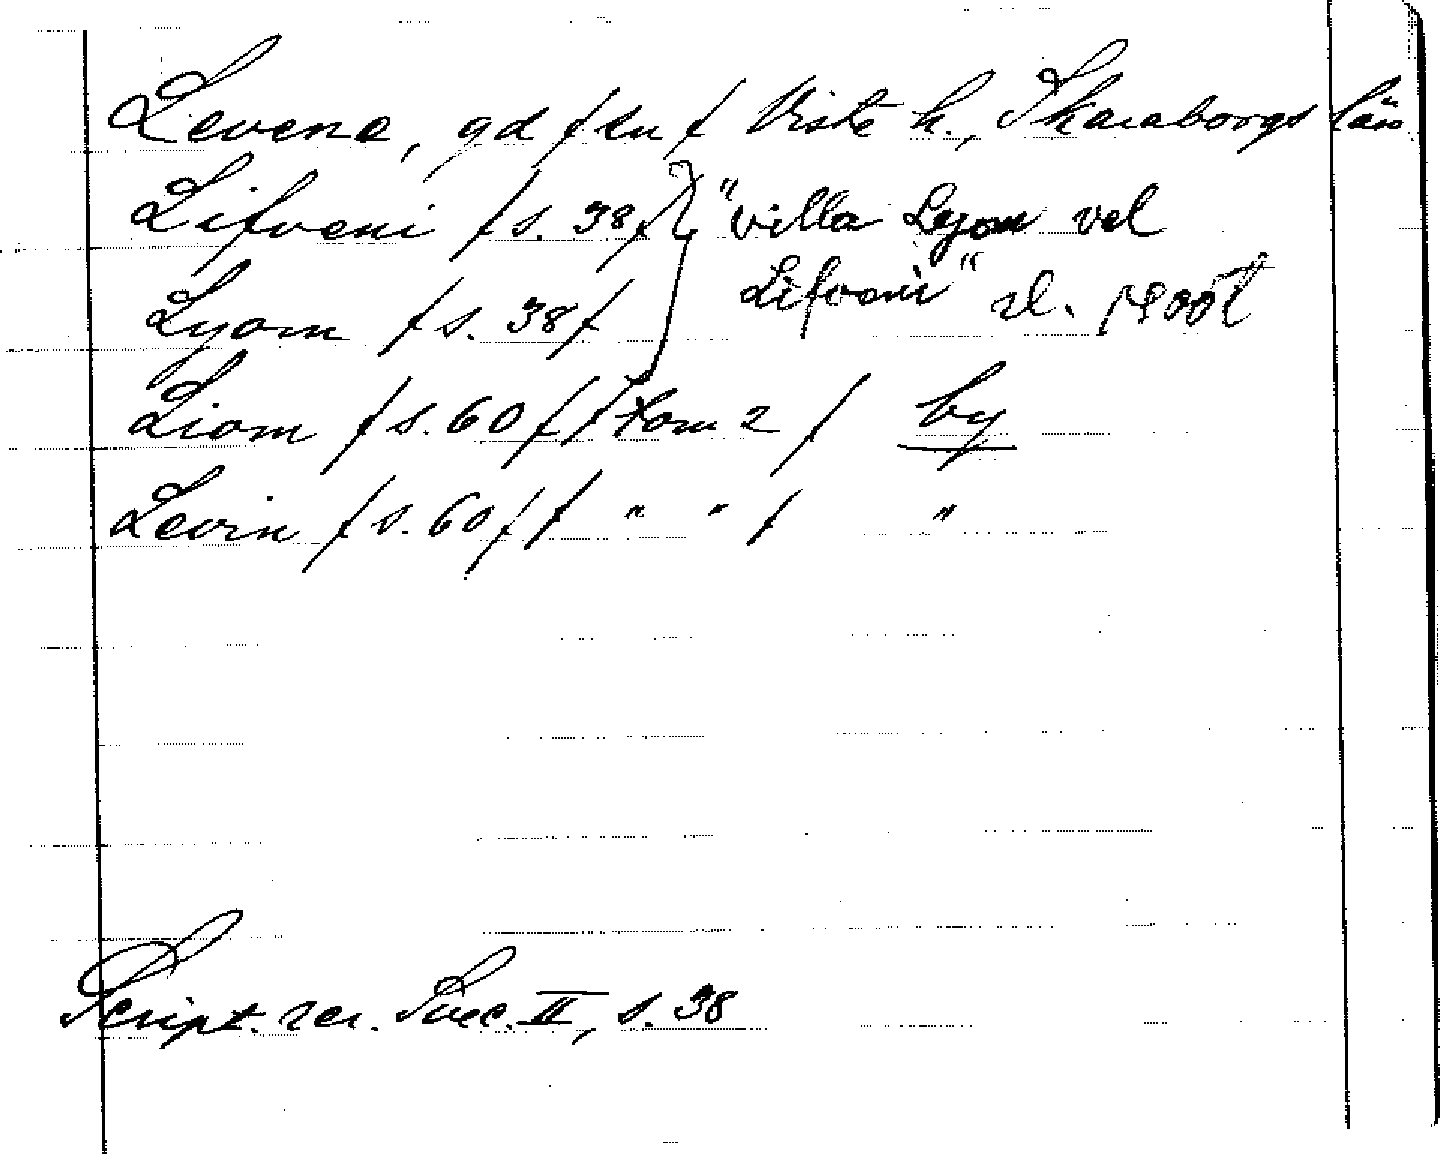 Levene, gd /sn/ Viste h., Skaraborgs län
Lifveni /s. 38/ } "villa Lyom vel
Lifveni"
Lyom /s. 38/
Liom /s. 60/ /tom 2/ by
Levin /s. 60/ / " " / "
Script. rer. Svec. II, s. 38